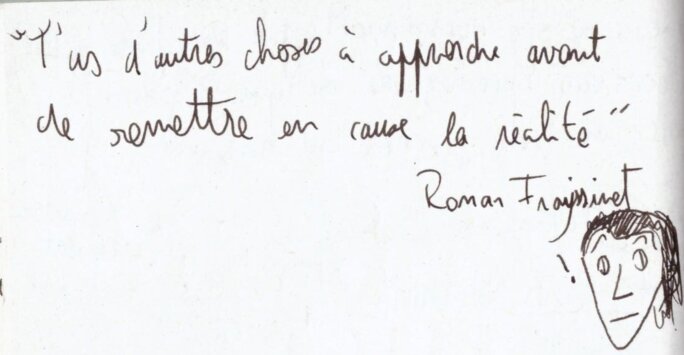 "T'as d'autres choses à apprendre avant
de remettre en cause la réalité"
Roman Frayssinet
!